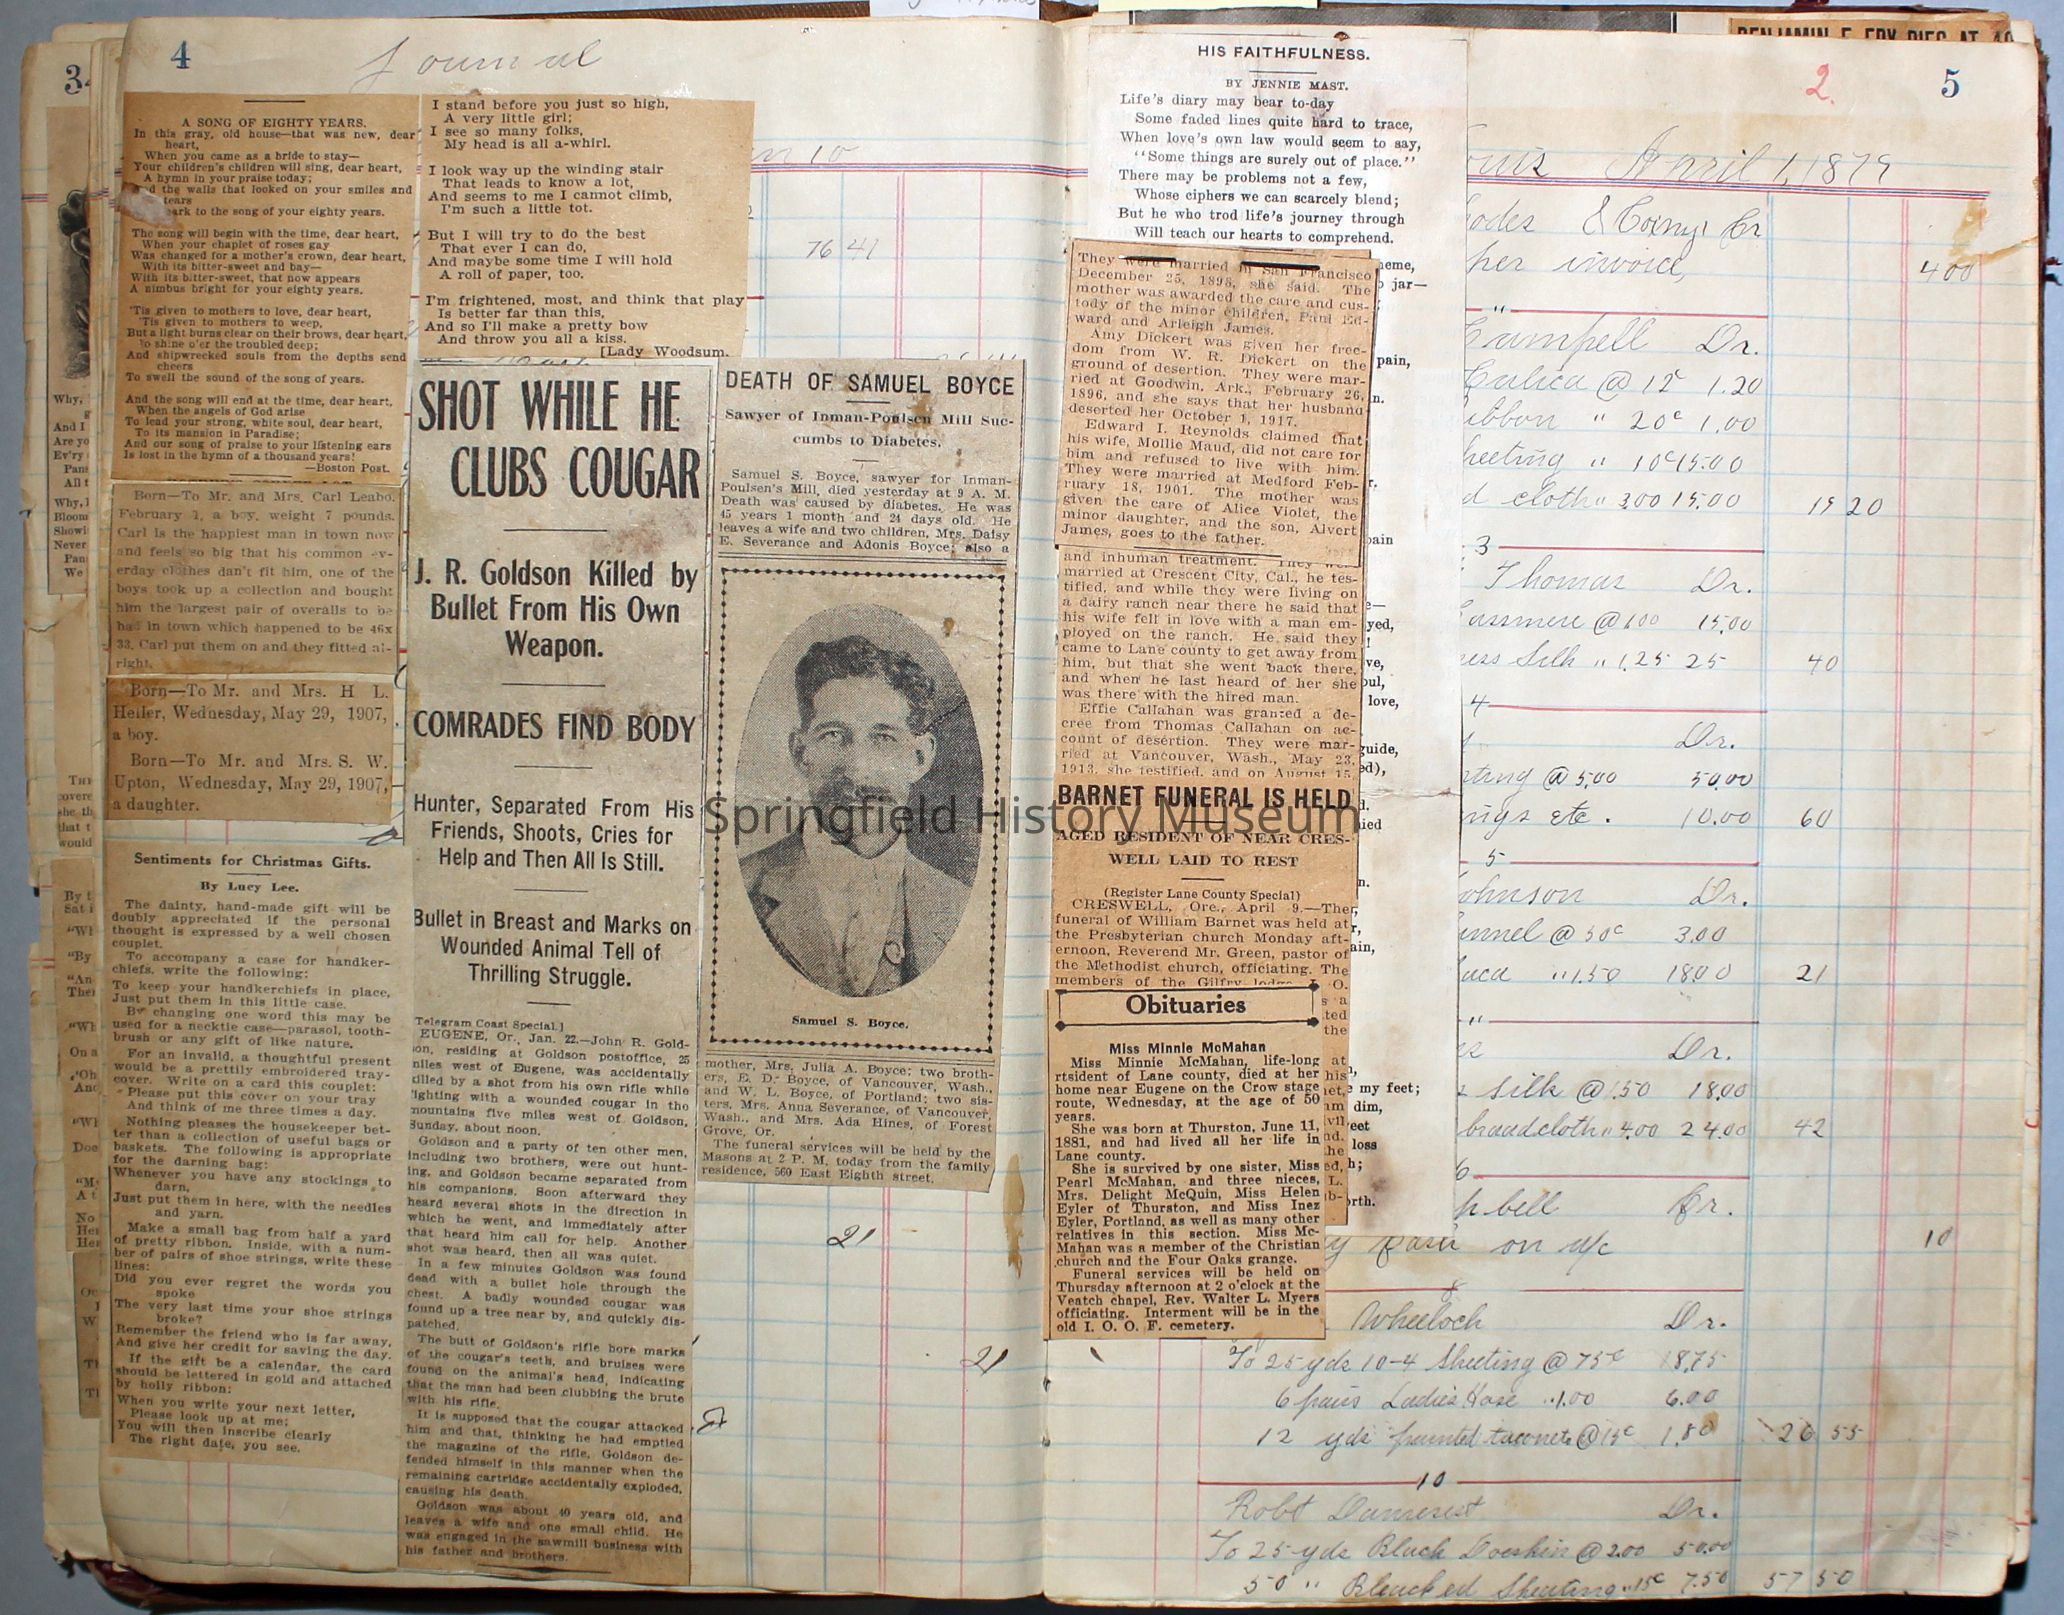 4
Journal
A SONG OF EIGHTY YEARS.
In this gray, old house—that was new, dear
heart,
When you came as a bride to stay—
Your children's children will sing, dear heart,
A hymn in your praise today;
the walls that looked on your smiles and
tears
to the song of your eighty years.
The song will begin with the time, dear heart,
When your chaplet of roses gay
Was changed for a mother's crown, dear heart,
With its bitter-sweet and bay—
With its bitter-sweet, that now appears
A nimbus bright for your eighty years.
'Tis given to mothers to love, dear heart,
'Tis given to mothers to weep,
But a light burns clear on their brows, dear heart,
To shine o'er the troubled deep;
And shipwrecked souls from the depths send
cheers
To swell the sound of the song of years.
And the song will end at the time, dear heart,
When the angels of God arise
To lead your strong, white soul, dear heart,
To its mansion in Paradise;
And our song of praise to your listening ears
Is lost in the hymn of a thousand years!
—Boston Post.
Born—To Mr. and Mrs. Carl Leabo.
February 1, a boy, weight 7 pounds.
Carl is the happiest man in town now
and feels so big that his common ev-
erday clothes dan't fit him, one of the
boys took up a collection and bought
him the largest pair of overalls to be
had in town which happened to be 46x
33. Carl put them on and they fitted al-
right.
Born—To Mr. and Mrs. H L.
Heiler, Wednesday, May 29, 1907,
a boy.
Born—To Mr. and Mrs. S. W.
Upton, Wednesday, May 29, 1907,
a daughter.
Sentiments for Christmas Gifts.
By Lucy Lee.
The dainty, hand-made gift will be
doubly appreciated if the personal
thought is expressed by a well chosen
couplet.
To accompany a case for handker-
chiefs, write the following:
To keep your handkerchiefs in place,
Just put them in this little case.
By changing one word this may be
used for a necktie case—parasol, tooth-
brush or any gift of like nature.
For an invalid, a thoughtful present
would be a prettily embroidered tray-
cover. Write on a card this couplet:
Please put this cover on your tray
And think of me three times a day.
Nothing pleases the housekeeper bet-
ter than a collection of useful bags or
baskets. The following is appropriate
for the darning bag:
Whenever you have any stockings to
darn,
Just put them in here, with the needles
and yarn.
Make a small bag from half a yard
of pretty ribbon. Inside, with a num-
ber of pairs of shoe strings, write these
lines:
Did you ever regret the words you
spoke
The very last time your shoe strings
broke?
Remember the friend who is far away,
And give her credit for saving the day.
If the gift be a calendar, the card
should be lettered in gold and attached
by holly ribbon:
When you write your next letter,
Please look up at me;
You will then inscribe clearly
The right date, you see.
I stand before you just so high,
A very little girl;
I see so many folks,
My head is all a-whirl.
I look way up the winding stair
That leads to know a lot,
And seems to me I cannot climb,
I'm such a little tot.
But I will try to do the best
That ever I can do,
And maybe some time I will hold
A roll of paper, too.
I'm frightened, most, and think that play
Is better far than this,
And so I'll make a pretty bow
And throw you all a kiss.
[Lady Woodsum.
SHOT WHILE HE
CLUBS COUGAR
J. R. Goldson Killed by
Bullet From His Own
Weapon.
COMRADES FIND BODY
Hunter, Separated From His
Friends, Shoots, Cries for
Help and Then All Is Still.
Bullet in Breast and Marks on
Wounded Animal Tell of
Thrilling Struggle.
Telegram Coast Special.]
EUGENE, Or., Jan. 22.—John R. Gold-
son, residing at Goldson postoffice, 25
miles west of Eugene, was accidentally
killed by a shot from his own rifle while
fighting with a wounded cougar in the
mountains five miles west of Goldson,
Sunday, about noon.
Goldson and a party of ten other men,
including two brothers, were out hunt-
ing, and Goldson became separated from
his companions. Soon afterward they
heard several shots in the direction in
which he went, and immediately after
that heard him call for help. Another
shot was heard, then all was quiet.
In a few minutes Goldson was found
dead with a bullet hole through the
chest. A badly wounded cougar was
found up a tree near by, and quickly dis-
patched.
The butt of Goldson's rifle bore marks
of the cougar's teeth, and bruises were
found on the animal's head, indicating
that the man had been clubbing the brute
with his rifle.
It is supposed that the cougar attacked
him and that, thinking he had emptied
the magazine of the rifle, Goldson de-
fended himself in this manner when the
remaining cartridge accidentally exploded,
causing his death.
Goldson was about 40 years old, and
leaves a wife and one small child. He
was engaged in the sawmill business with
his father and brothers.
76 41
DEATH OF SAMUEL BOYCE
Sawyer of Inman-Poulsen Mill Suc-
cumbs to Diabetes.
Samuel S. Boyce, sawyer for Inman-
Poulsen's Mill, died yesterday at 9 A. M.
Death was caused by diabetes. He was
45 years 1 month and 24 days old. He
leaves a wife and two children, Mrs. Daisy
E. Severance and Adonis Boyce; also a
Samuel S. Boyce.
mother, Mrs. Julia A. Boyce; two broth-
ers, E. D. Boyce, of Vancouver, Wash.,
and W. L. Boyce, of Portland; two sis-
ters, Mrs. Anna Severance, of Vancouver,
Wash., and Mrs. Ada Hines, of Forest
Grove, Or.
The funeral services will be held by the
Masons at 2 P. M. today from the family
residence, 560 East Eighth street.
21
21
Springfield History Museum
HIS FAITHFULNESS.
BY JENNIE MAST.
Life's diary may bear to-day
Some faded lines quite hard to trace,
When love's own law would seem to say,
"Some things are surely out of place."
There may be problems not a few,
Whose ciphers we can scarcely blend;
But he who trod life's journey through
Will teach our hearts to comprehend.
They were married in San Francisco
December 25, 1895, she said. The
mother was awarded the care and cus-
tody of the minor children, Paul Ed-
ward and Arleigh James.
Amy Dickert was given her free-
dom from W. R. Dickert on the
ground of desertion. They were mar-
ried at Goodwin, Ark., February 26,
1896, and she says that her husband
deserted her October 1, 1917.
Edward I. Reynolds claimed that
his wife, Mollie Maud, did not care for
him and refused to live with him.
They were married at Medford Feb-
ruary 18, 1901. The mother was
given the care of Alice Violet, the
minor daughter, and the son, Alvert
James, goes to the father.
and inhuman treatment. They were
married at Crescent City, Cal., he tes-
tified, and while they were living on
a dairy ranch near there he said that
his wife fell in love with a man em-
ployed on the ranch. He said they
came to Lane county to get away from
him, but that she went back there,
and when he last heard of her she
was there with the hired man.
Effie Callahan was granted a de-
cree from Thomas Callahan on ac-
count of desertion. They were mar-
ried at Vancouver, Wash., May 23,
1913, she testified, and on August 15,
BARNET FUNERAL IS HELD
AGED RESIDENT OF NEAR CRES-
WELL LAID TO REST
(Register Lane County Special)
CRESWELL, Ore., April 9.—The
funeral of William Barnet was held at
the Presbyterian church Monday aft-
ernoon, Reverend Mr. Green, pastor of
the Methodist church, officiating. The
members of the Gilfry lodge
Obituaries
Miss Minnie McMahan
Miss Minnie McMahan, life-long
rtsident of Lane county, died at her
home near Eugene on the Crow stage
route, Wednesday, at the age of 50
years.
She was born at Thurston, June 11,
1881, and had lived all her life in
Lane county.
She is survived by one sister, Miss
Pearl McMahan, and three nieces,
Mrs. Delight McQuin, Miss Helen
Eyler of Thurston, and Miss Inez
Eyler, Portland, as well as many other
relatives in this section. Miss Mc-
Mahan was a member of the Christian
church and the Four Oaks grange.
Funeral services will be held on
Thursday afternoon at 2 o'clock at the
Veatch chapel, Rev. Walter L. Myers
officiating. Interment will be in the
old I. O. O. F. cemetery.
BENJAMIN F. FRY DIES AT
2.
5
April 1, 1879
Cr
per invoice, 400
Campfell Dr.
Calico @ 12c 1.20
ibbon " 20c 1.00
heeting " 10c 15.00
d cloth " 3.00 15.00 19 20
3
Thomas Dr.
assmere @ 1.00 15.00
ess Silk " 1.25 25 40
4
Dr.
ting @ 5.00 50.00
ngs etc. 10.00 60
5
ohnson Dr.
annel @ 30c 3.00
aca " 1.50 18.00 21
"
Dr.
silk @ 1.50 18.00
broadcloth " 4.00 24.00 42
6
pbell Cr.
on a/c 10
8
Wheeloch Dr.
To 25 yds 10-4 Sheeting @ 75c 18.75
6 pairs Ladies Hose " 1.00 6.00
12 yds @ 15c 1.80 26 55
10
Robt Damerest Dr.
To 25 yds Black Doeskin @ 2.00 50.00
50 " Bleached Sheating " 15c 7.50 57 50